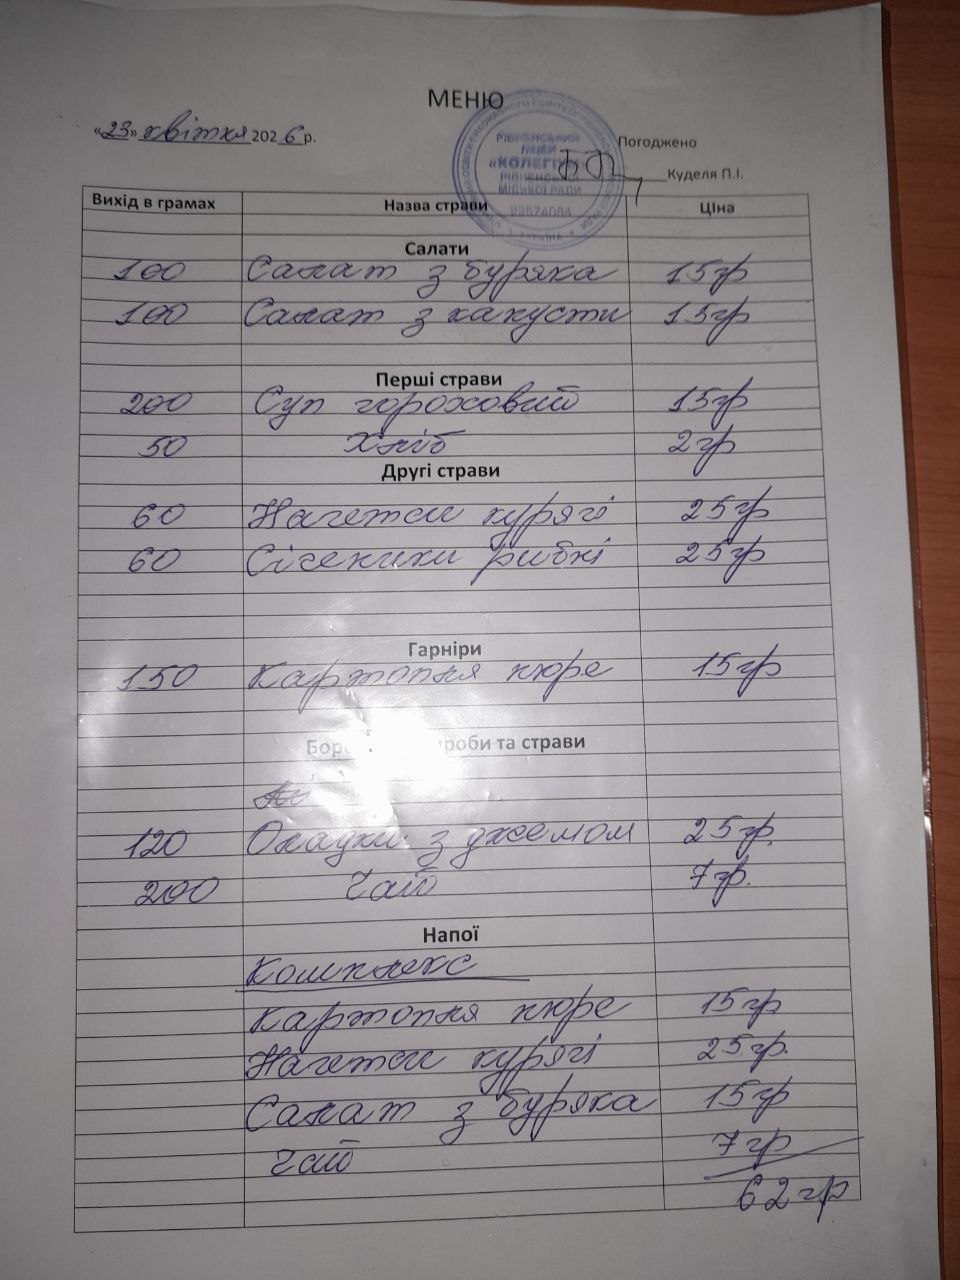 МЕНЮ
«23» квітня 2026 р.
Погоджено
Куделя П.І.
РІВНЕНСЬКИЙ
ЛІЦЕЙ
«КОЛЕГІУМ»
РІВНЕНСЬКОЇ
МІСЬКОЇ РАДИ
УКРАЇНА
Вихід в грамах Назва страви Ціна
Салати
100 Салат з буряка 15гр
100 Салат з капусти 15гр
Перші страви
200 Суп гороховий 15гр
50 Хліб 2гр
Другі страви
60 Нагетси курячі 25гр
60 Січеники рибні 25гр
Гарніри
150 Картопля пюре 15гр
Боро роби та страви
120 Оладки з джемом 25гр.
200 Чай 7гр.
Напої
Комплекс
Картопля пюре 15гр
Нагетси курячі 25гр.
Салат з буряка 15гр
Чай 7гр
62гр